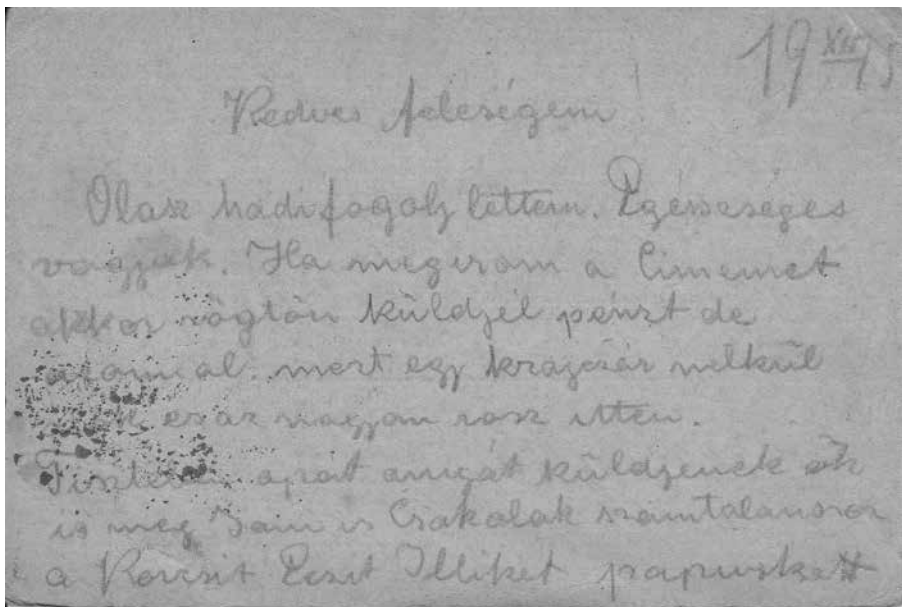 19 XII 15
Kedves feleségem!
Olasz hadifogoj lettem. Egésséges
vagyok. Ha megirom a Cimemet
akkor rögtön küldjél pénzt de
azonnal. mert egy krajcsár nélkül
ez az nagyon rosz itten.
Tisztelem apát anyát küldjenek ők
is meg Csokolak számtalanszor
a Korcsit Eszit Illiket papuskátt